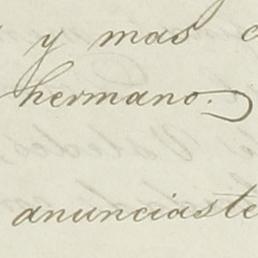 y mas
hermano.
anunciaste